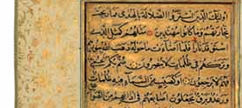 اولئك الذين اشتروا الضلالة بالهدى فما ربحت
تجارتهم وما كانوا مهتدين مثلهم كمثل الذي
استوقد نارا فلما اضاءت ما حوله ذهب الله بنورهم
وتركهم في ظلمات لا يبصرون صم بكم عمي
فهم لا يرجعون او كصيب من السماء فيه ظلمات
ورعد وبرق يجعلون اصابعهم في اذانهم من الصواعق